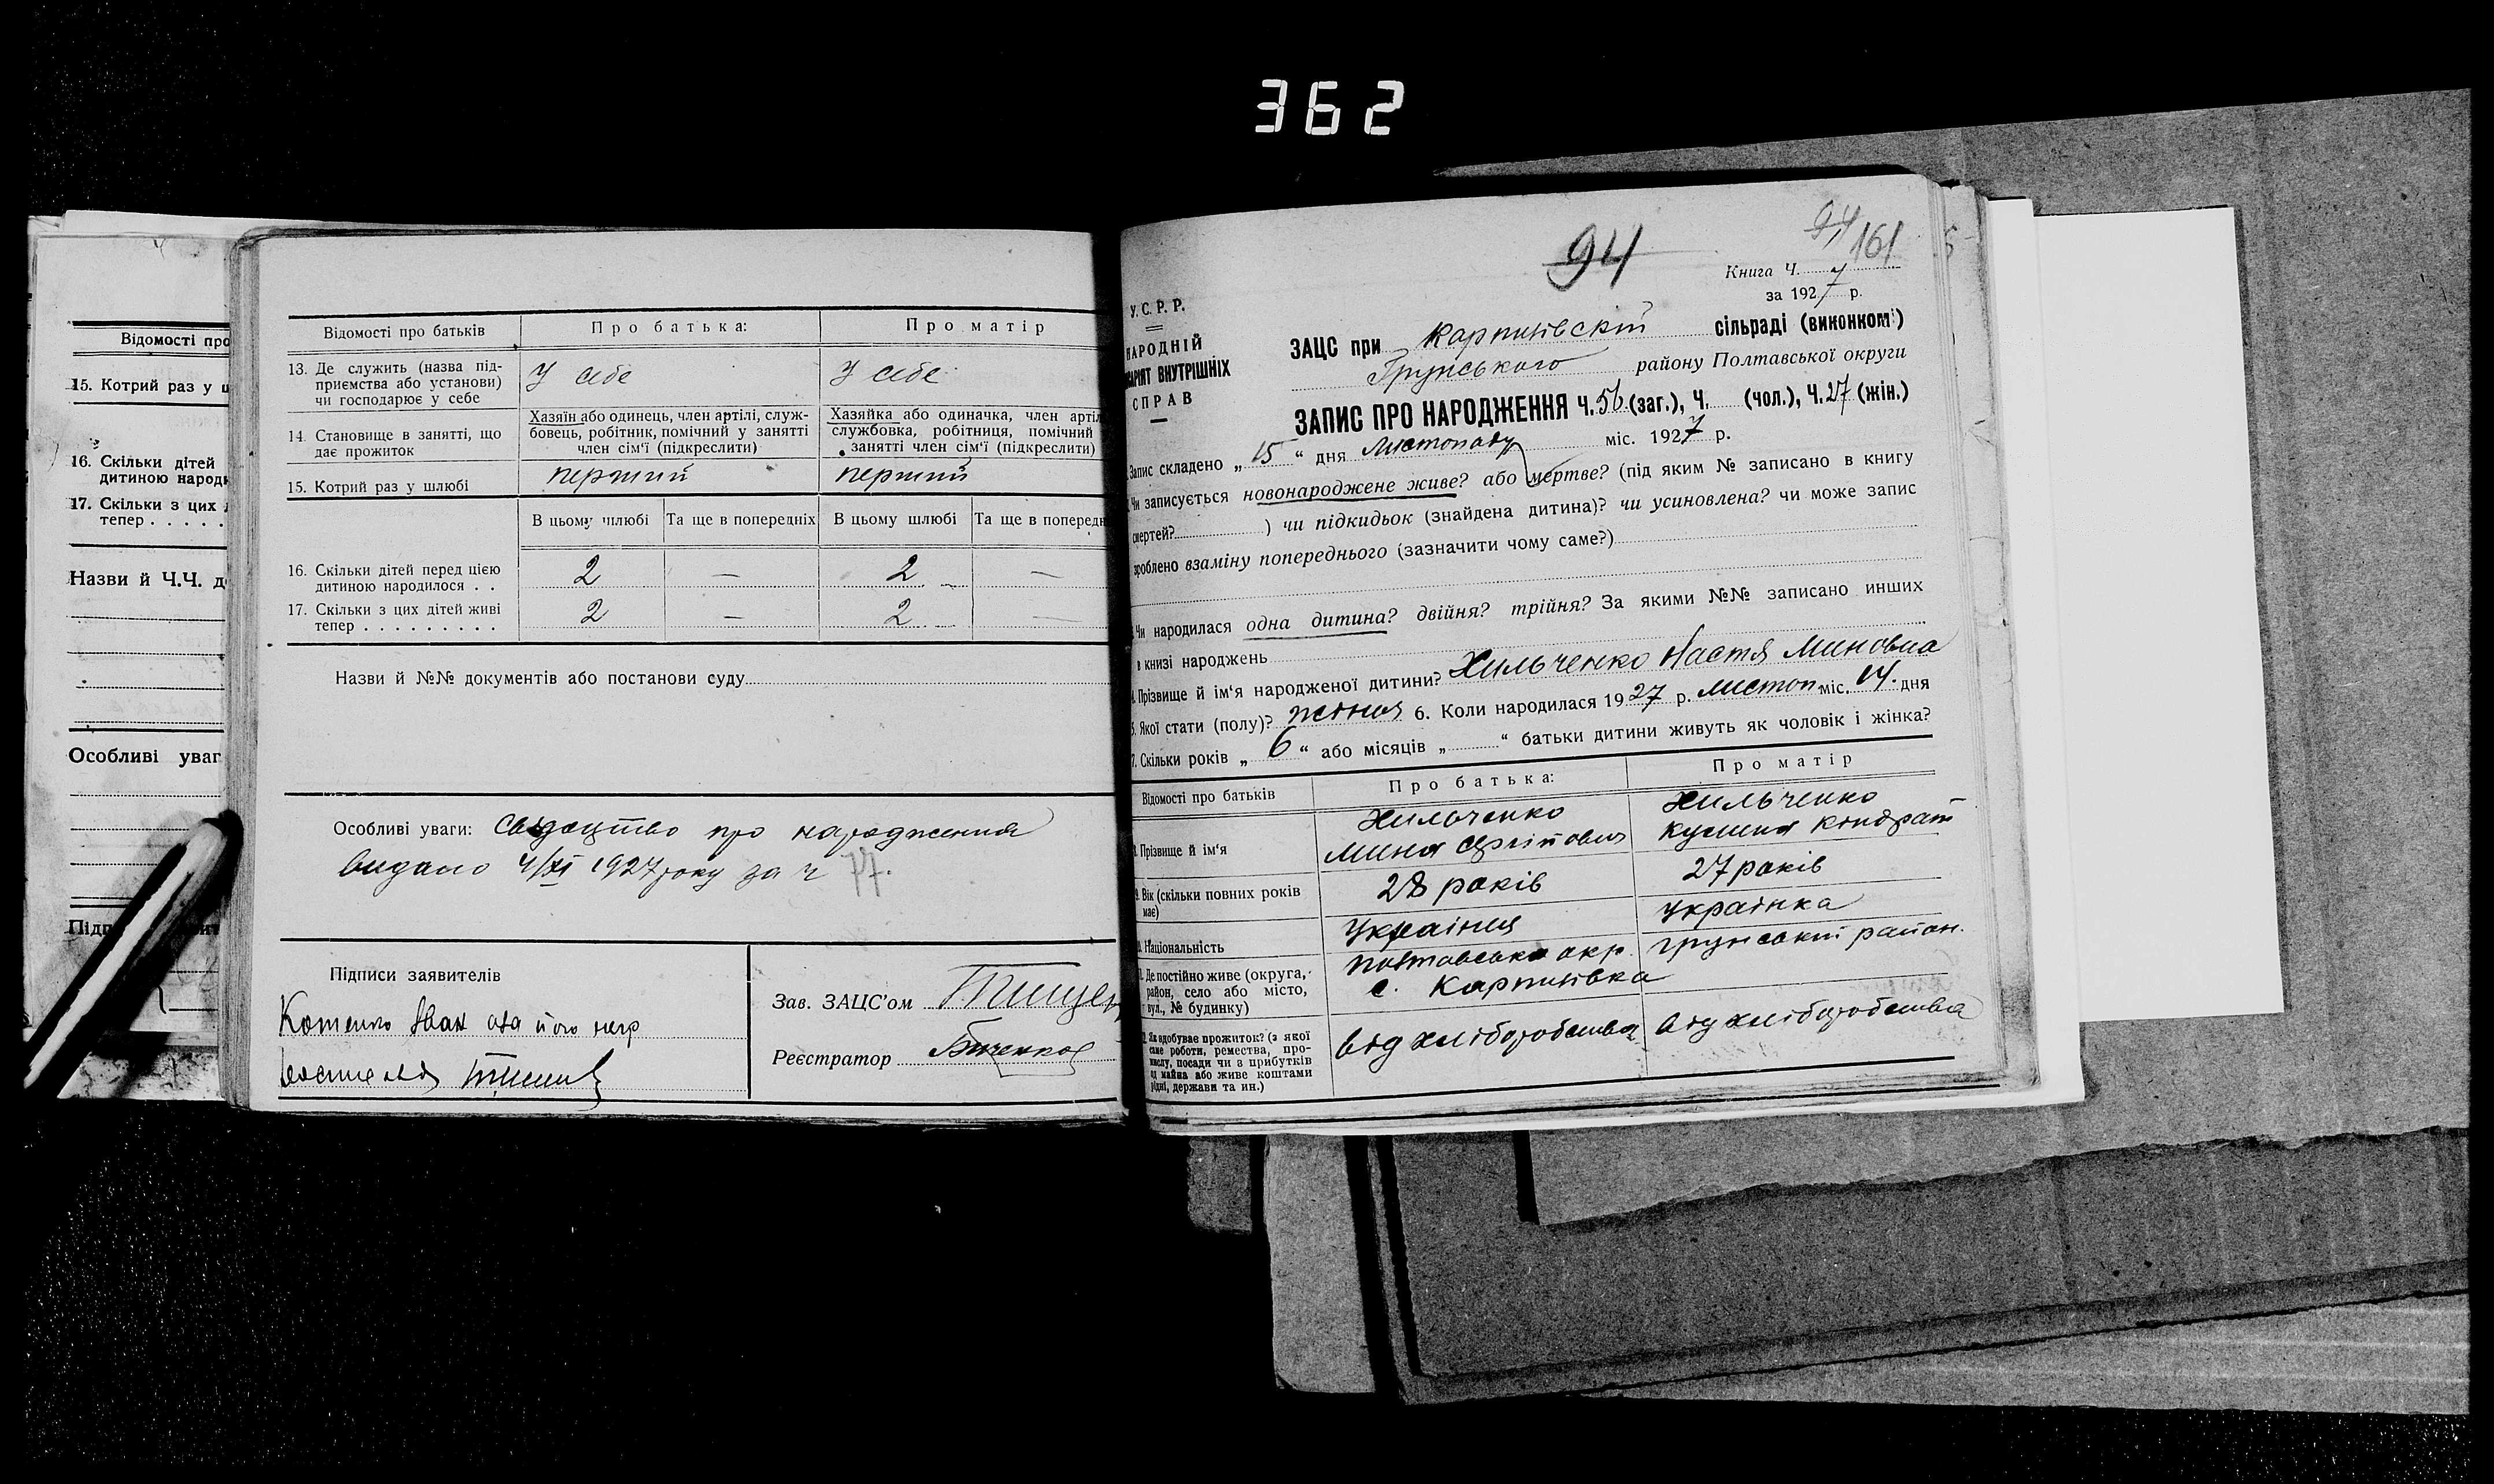 362
Відомості про
15. Котрий раз у ш
16. Скільки дітей
дитиною народи
17. Скільки з цих
тепер . . . . .
Назви й Ч.Ч. д
Особливі уваг
Підп
Відомості про батьків
Про батька:
Про матір
13. Де служить (назва під-
приємства або установи)
чи господарює у себе
У себе
У себе
14. Становище в занятті, що
дає прожиток
Хазяїн або одинець, член артілі, служ-
бовець, робітник, помічний у занятті
член сім'ї (підкреслити)
Хазяйка або одиначка, член артіл
службовка, робітниця, помічний
занятті член сім'ї (підкреслити)
15. Котрий раз у шлюбі
перший
перший
В цьому шлюбі
Та ще в попередніх
В цьому шлюбі
Та ще в попередн
16. Скільки дітей перед цією
дитиною народилося . .
2 — 2 —
17. Скільки з цих дітей живі
тепер . . . . . . . . .
2 — 2 —
Назви й №№ документів або постанови суду
Особливі уваги: Свідоцтво про народження
видано 4/XI 1927 року за ч 77.
Підписи заявителів
Котенко Іван ода його негр
Зав. ЗАЦС'ом Тищен
Реєстратор
94
94 161
Книга Ч. 7
за 1927 р.
У.С.Р.Р.
НАРОДНІЙ
АРІЯТ ВНУТРІШНІХ
СПРАВ
ЗАЦС при Карпилівскій сільраді (виконкомі)
Грунського району Полтавської округи
ЗАПИС ПРО НАРОДЖЕННЯ Ч. 56 (заг.), Ч. (чол.), Ч. 27 (жін.)
Запис складено „ 15 “ дня Листопаду міс. 1927 р.
Чи записується новонароджене живе? або мертве? (під яким № записано в книгу
смертей? ) чи підкидьок (знайдена дитина)? чи усиновлена? чи може запис
зроблено взаміну попереднього (зазначити чому саме?)
Чи народилася одна дитина? двійня? трійня? За якими №№ записано инших
в книзі народжень
4. Прізвище й ім'я народженої дитини? Хильченко Настя Миновна
5. Якої стати (полу)? жіноя 6. Коли народилася 1927 р. листоп міс. 14. дня
7. Скільки років „ 6 “ або місяців „ “ батьки дитини живуть як чоловік і жінка?
Відомості про батьків
Про батька:
Про матір
Прізвище й ім'я
Хильченко
Мина
Хильченко
Кондрат
9. Вік (скільки повних років
має)
28 років
27 років
Національність
Українця
Українка
Де постійно живе (округа,
район, село або місто,
вул., № будинку)
Полтавська окр. Грунський район.
с. Карпилівка
Як здобуває прожиток? (з якої
саме роботи, ремества, про-
мислу, посади чи в прибутків
од майна або живе коштами
рідні, держави та ин.)
від хліборобства
від хліборобства